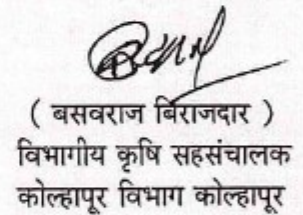 ( बसवराज बिराजदार )
विभागीय कृषि सहसंचालक
कोल्हापूर विभाग कोल्हापूर